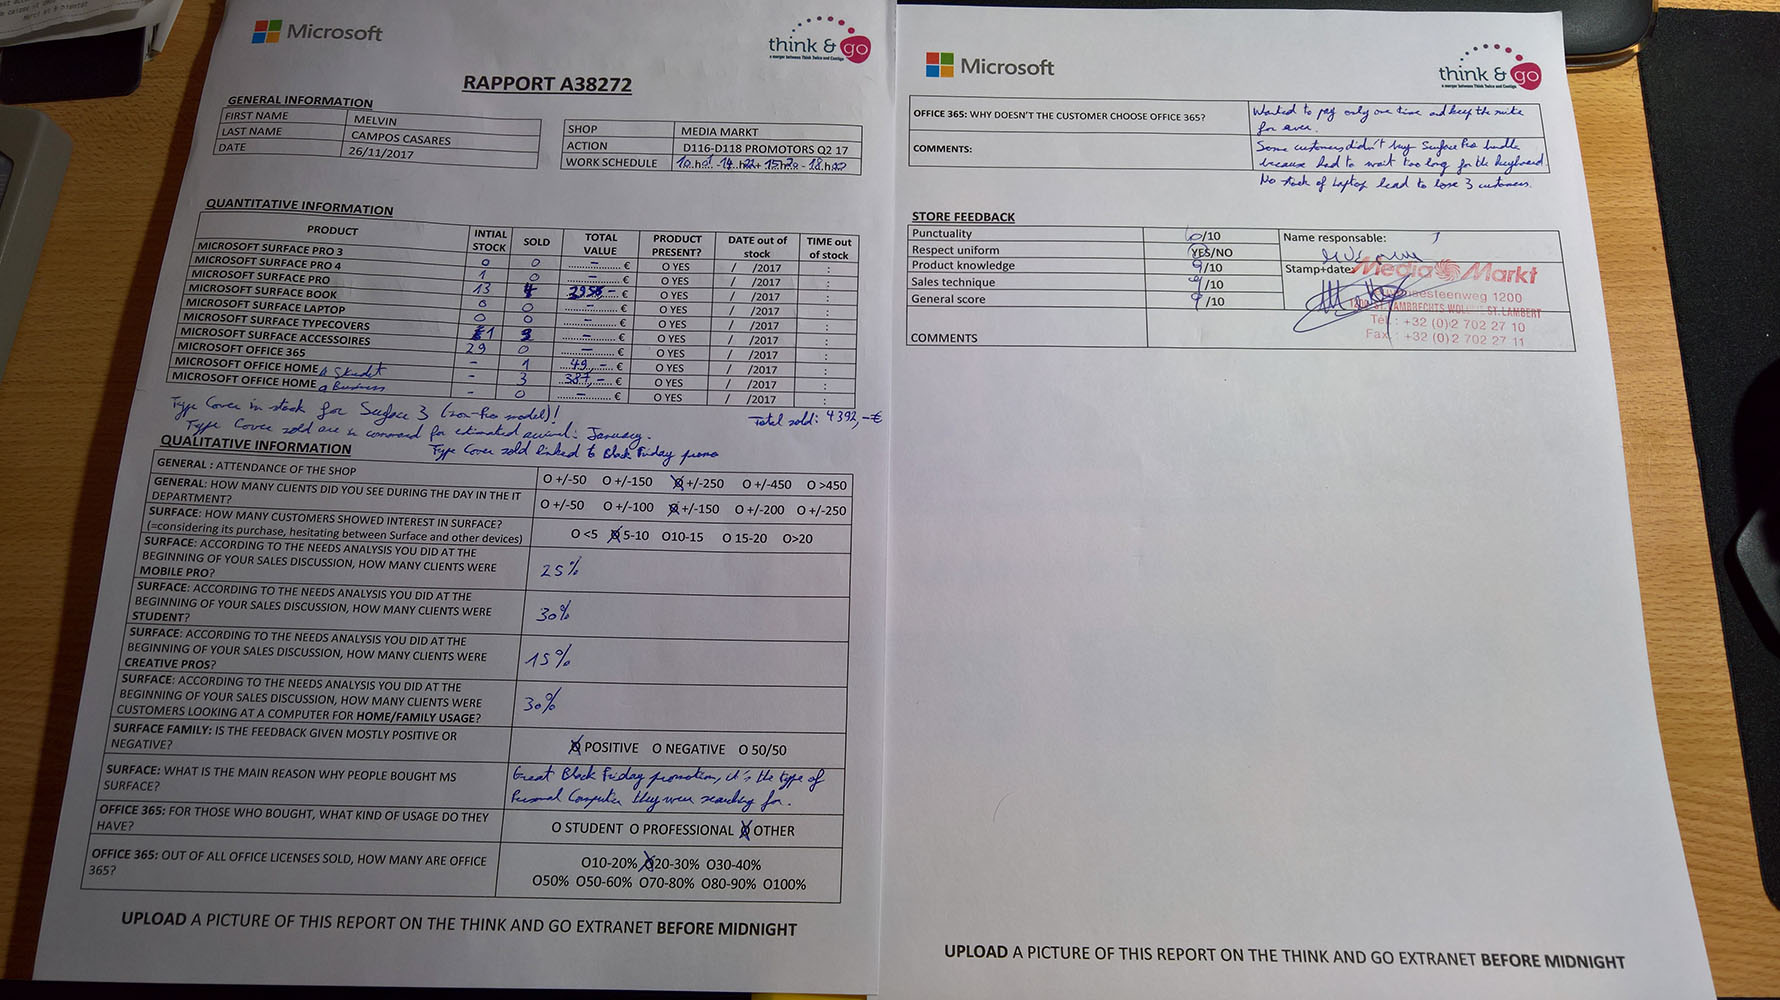 Microsoft
think & go
a merger between Think Twice and Contigo
RAPPORT A38272
GENERAL INFORMATION
FIRST NAME MELVIN
LAST NAME CAMPOS CASARES
DATE 26/11/2017
SHOP MEDIA MARKT
ACTION D116-D118 PROMOTORS Q2 17
WORK SCHEDULE
QUANTITATIVE INFORMATION
PRODUCT INTIAL STOCK SOLD TOTAL VALUE PRODUCT PRESENT? DATE out of stock TIME out of stock
MICROSOFT SURFACE PRO 3 0 0 - € O YES / /2017 :
MICROSOFT SURFACE PRO 4 1 0 - € O YES / /2017 :
MICROSOFT SURFACE PRO 13 € O YES / /2017 :
MICROSOFT SURFACE BOOK 0 0 - € O YES / /2017 :
MICROSOFT SURFACE LAPTOP 0 0 - € O YES / /2017 :
MICROSOFT SURFACE TYPECOVERS - € O YES / /2017 :
MICROSOFT SURFACE ACCESSOIRES 29 0 - € O YES / /2017 :
MICROSOFT OFFICE 365 - 1 49,- € O YES / /2017 :
MICROSOFT OFFICE HOME & Student - 3 387,- € O YES / /2017 :
MICROSOFT OFFICE HOME & Business - 0 - € O YES / /2017 :
Type Cover in stock for Surface 3 (non-Pro model)!
Total sold: 4392,-€
Type Cover sold are in command for estimated arrival: January.
Type Cover sold linked to Black Friday promo
QUALITATIVE INFORMATION
GENERAL : ATTENDANCE OF THE SHOP
O +/-50 O +/-150 O +/-250 O +/-450 O >450
GENERAL: HOW MANY CLIENTS DID YOU SEE DURING THE DAY IN THE IT
DEPARTMENT?
O +/-50 O +/-100 O +/-150 O +/-200 O +/-250
SURFACE: HOW MANY CUSTOMERS SHOWED INTEREST IN SURFACE?
(=considering its purchase, hesitating between Surface and other devices)
O <5 O 5-10 O10-15 O 15-20 O>20
SURFACE: ACCORDING TO THE NEEDS ANALYSIS YOU DID AT THE
BEGINNING OF YOUR SALES DISCUSSION, HOW MANY CLIENTS WERE
MOBILE PRO?
25%
SURFACE: ACCORDING TO THE NEEDS ANALYSIS YOU DID AT THE
BEGINNING OF YOUR SALES DISCUSSION, HOW MANY CLIENTS WERE
STUDENT?
30%
SURFACE: ACCORDING TO THE NEEDS ANALYSIS YOU DID AT THE
BEGINNING OF YOUR SALES DISCUSSION, HOW MANY CLIENTS WERE
CREATIVE PROS?
15%
SURFACE: ACCORDING TO THE NEEDS ANALYSIS YOU DID AT THE
BEGINNING OF YOUR SALES DISCUSSION, HOW MANY CLIENTS WERE
CUSTOMERS LOOKING AT A COMPUTER FOR HOME/FAMILY USAGE?
30%
SURFACE FAMILY: IS THE FEEDBACK GIVEN MOSTLY POSITIVE OR
NEGATIVE?
O POSITIVE O NEGATIVE O 50/50
SURFACE: WHAT IS THE MAIN REASON WHY PEOPLE BOUGHT MS
SURFACE?
Great Black Friday promotion, it's the type of
Personal Computer they were searching for.
OFFICE 365: FOR THOSE WHO BOUGHT, WHAT KIND OF USAGE DO THEY
HAVE?
O STUDENT O PROFESSIONAL O OTHER
OFFICE 365: OUT OF ALL OFFICE LICENSES SOLD, HOW MANY ARE OFFICE
365?
O10-20% O20-30% O30-40%
O50% O50-60% O70-80% O80-90% O100%
UPLOAD A PICTURE OF THIS REPORT ON THE THINK AND GO EXTRANET BEFORE MIDNIGHT
Microsoft
think & go
a merger between Think Twice and Contigo
OFFICE 365: WHY DOESN'T THE CUSTOMER CHOOSE OFFICE 365?
Wanted to pay only one time and keep the suite
for ever.
COMMENTS:
Some customers didn't buy Surface Pro bundle
because had to wait too long for the keyboard
No stock of Laptop lead to lose 3 customers.
STORE FEEDBACK
Punctuality /10
Respect uniform YES/NO
Product knowledge 9/10
Sales technique 9/10
General score 9/10
COMMENTS
Name responsable:
Stamp+date:
Media Markt
1200
ST. LAMBERT
Tél.: +32 (0)2 702 27 10
Fax.: +32 (0)2 702 27 11
UPLOAD A PICTURE OF THIS REPORT ON THE THINK AND GO EXTRANET BEFORE MIDNIGHT